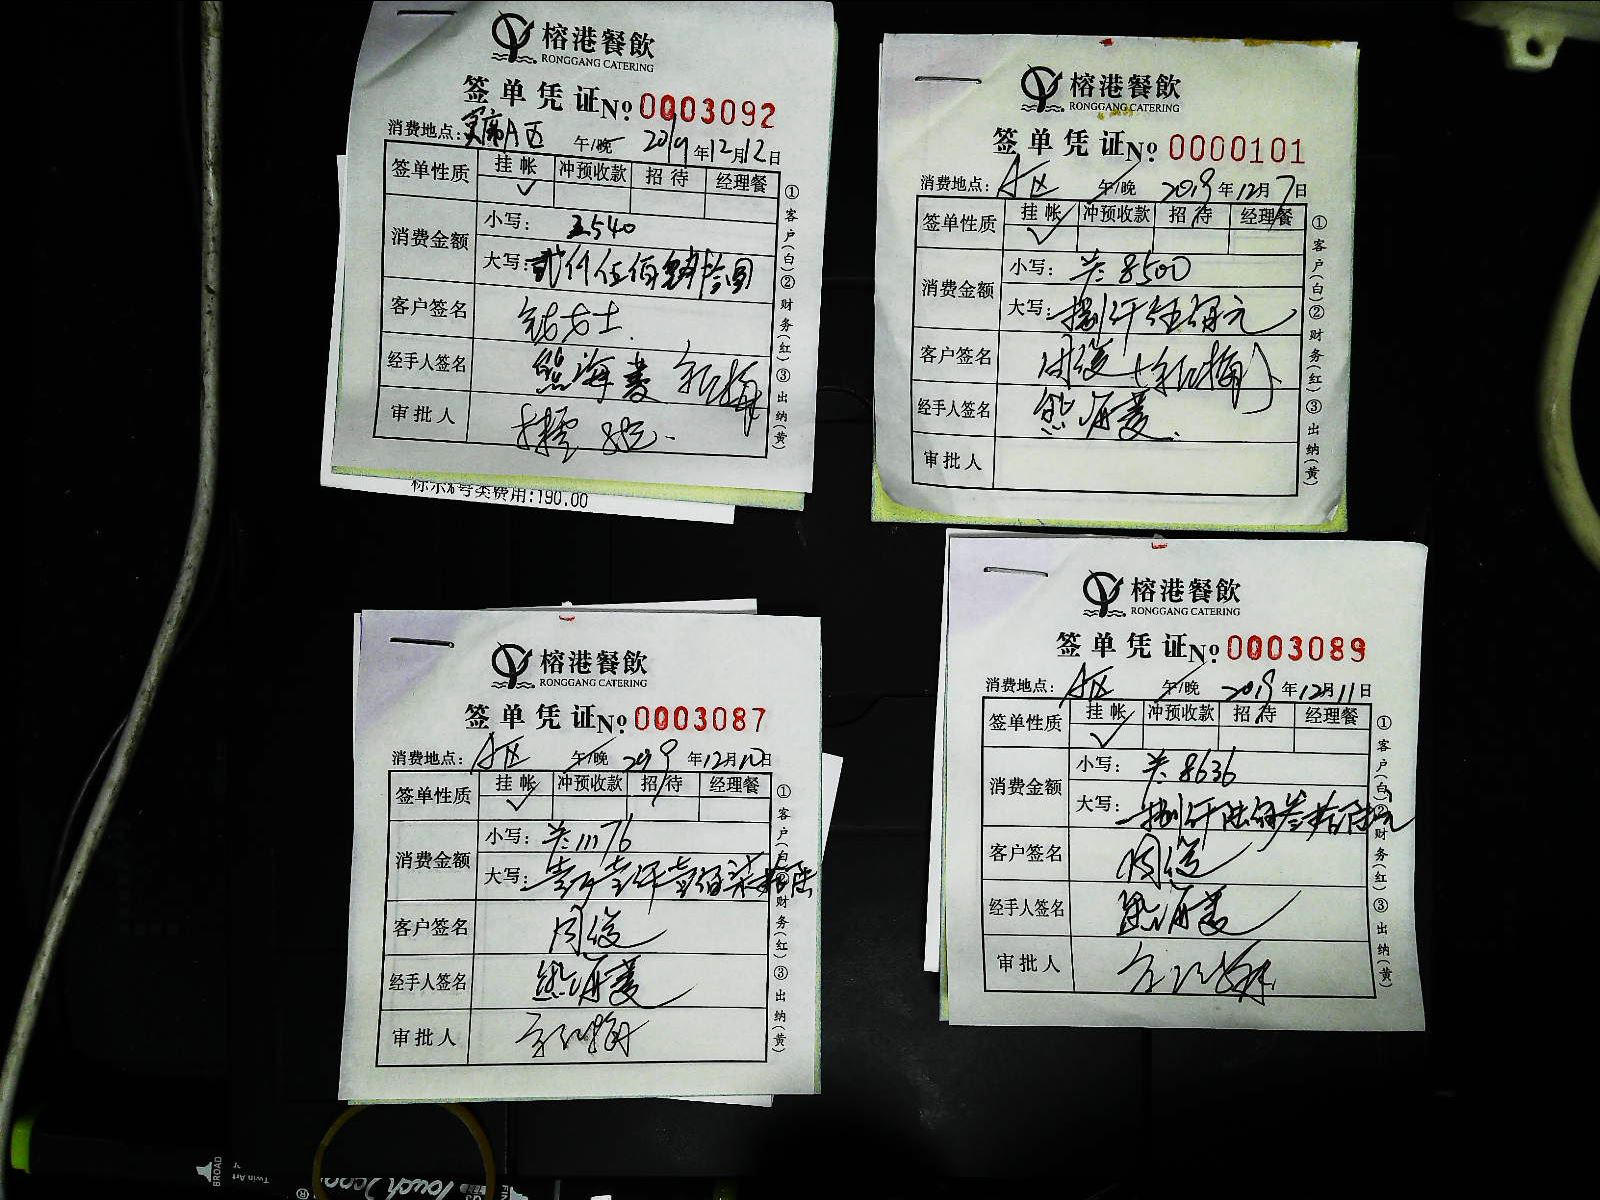 榕港餐飲
RONGGANG CATERING
签单凭证 No 0003092
消费地点: A区 午/晚 2019年12月12日
签单性质 挂帐 冲预收款 招待 经理餐
✓
消费金额 小写: 2540
大写: 贰仟伍佰肆拾圆
客户签名
经手人签名 熊海菱
审批人
①客户(白)②财务(红)③出纳(黄)
费用:190.00
榕港餐飲
RONGGANG CATERING
签单凭证 No 0000101
消费地点: A区 午/晚 2019年12月7日
签单性质 挂帐 冲预收款 招待 经理餐
✓
消费金额 小写: 8500
大写: 捌仟伍佰元
客户签名 周俊
经手人签名 熊海菱
审批人
①客户(白)②财务(红)③出纳(黄)
榕港餐飲
RONGGANG CATERING
签单凭证 No 0003087
消费地点: A区 午/晚 2019年12月10日
签单性质 挂帐 冲预收款 招待 经理餐
✓
消费金额 小写: 11176
大写: 壹万壹仟壹佰柒拾陆
客户签名 周俊
经手人签名 熊海菱
审批人
①客户(白)②财务(红)③出纳(黄)
榕港餐飲
RONGGANG CATERING
签单凭证 No 0003089
消费地点: A区 午/晚 2019年12月11日
签单性质 挂帐 冲预收款 招待 经理餐
✓
消费金额 小写: 8636
大写: 捌仟陆佰叁拾陆元
客户签名 周俊
经手人签名 熊海菱
审批人
①客户(白)②财务(红)③出纳(黄)
BROAD
Twin Art
Touch